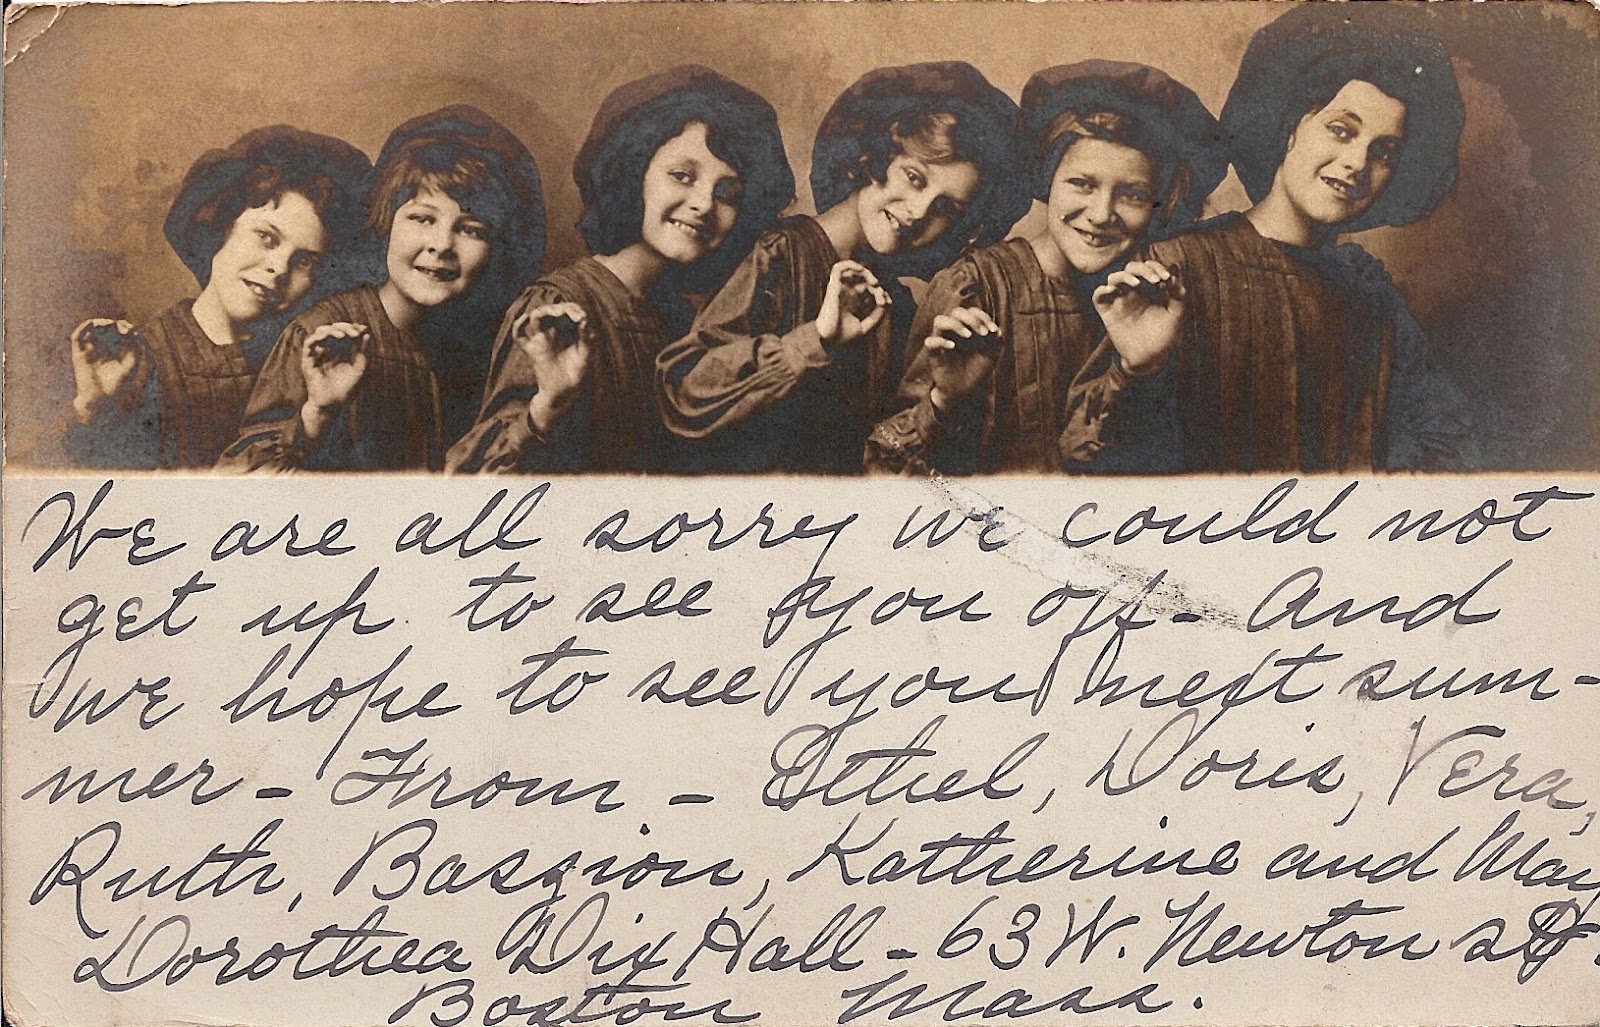 We are all sorry we could not
get up to see you off - And
we hope to see you next sum-
mer - From - Ethel, Doris, Vera,
Ruth, Bassion, Katherine and May
Dorothea Dix Hall - 63 W. Newton St.
Boston Mass.